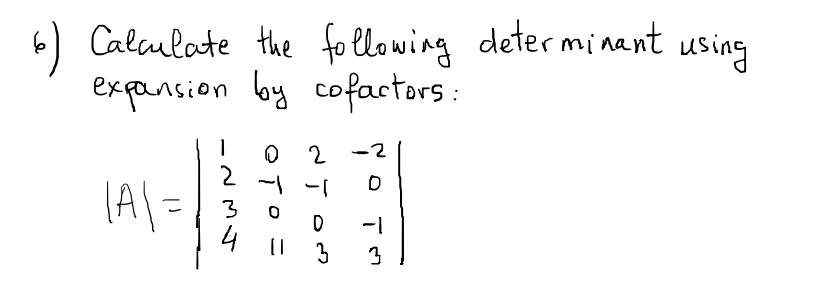 6) Calculate the following determinant using
expansion by cofactors:
|A| = | 1 0 2 -2 |
| 2 -1 -1 0 |
| 3 0 0 -1 |
| 4 11 3 3 |